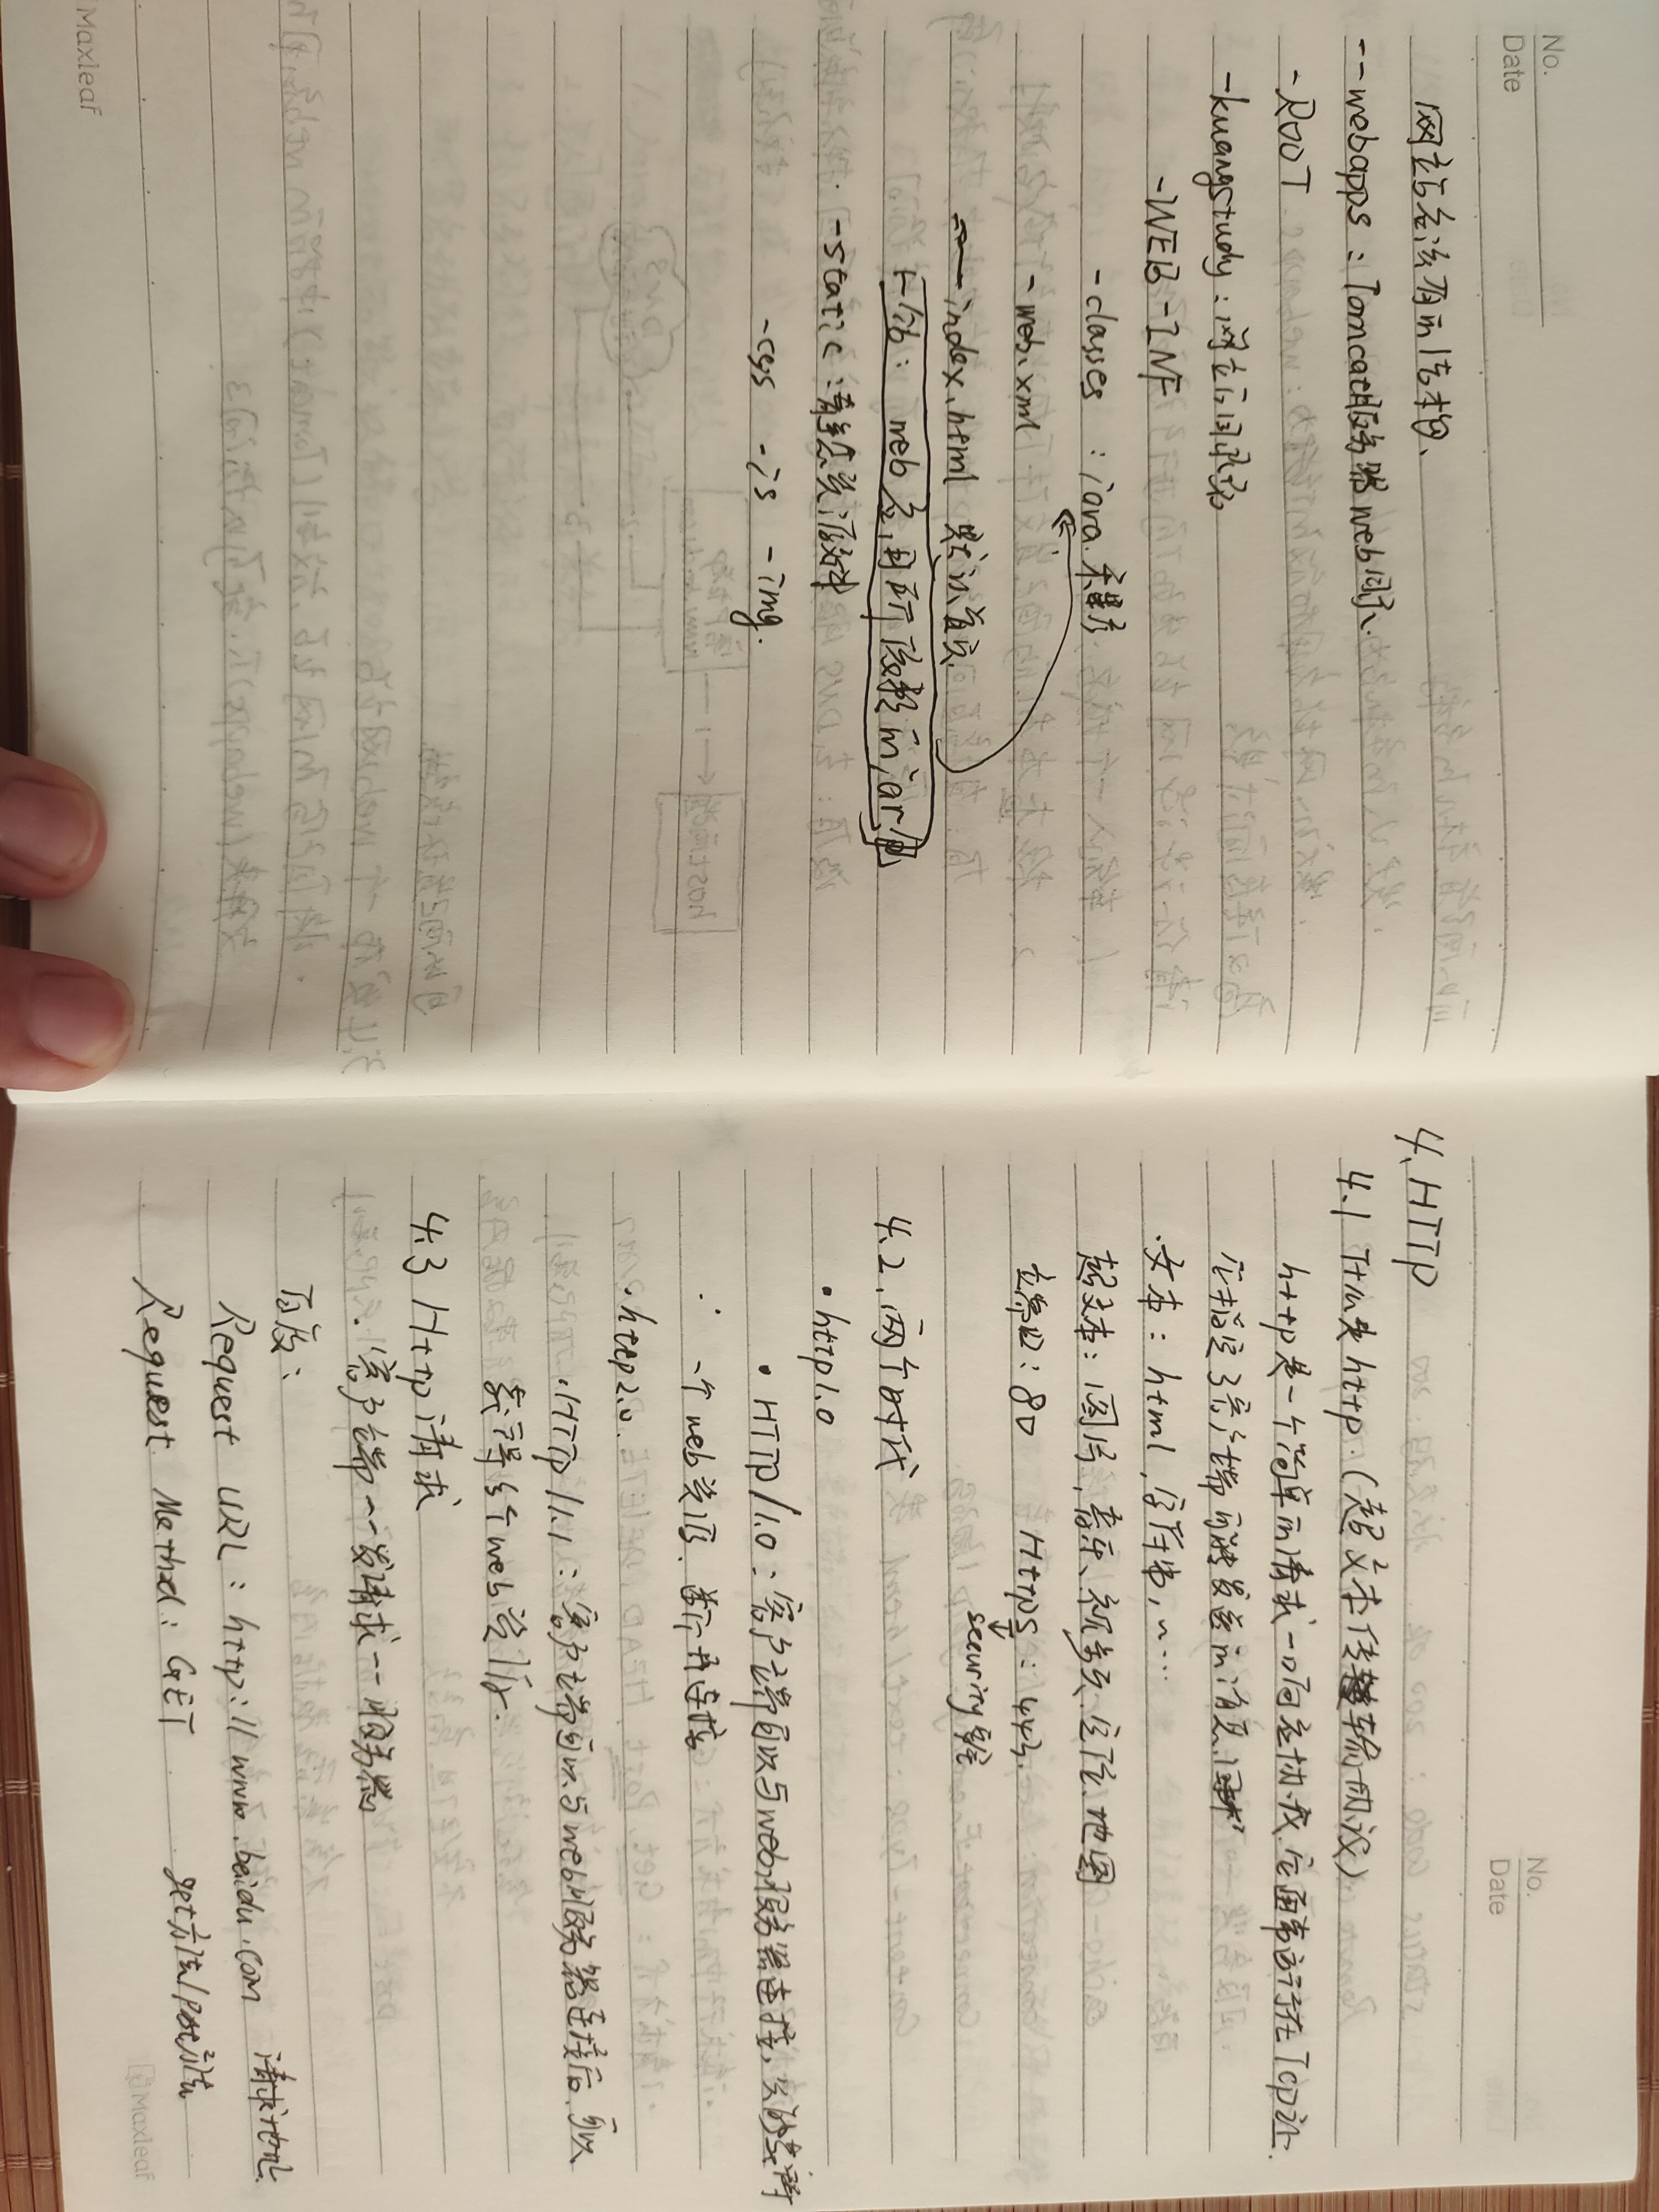 No.
Date
网站应该有的结构、
--webapps：Tomcat服务器web目录.
-ROOT
-kuangstudy：网站目录名
-WEB-INF
-classes：java程序
-web.xml
-index.html 默认首页
-lib：web应用所依赖的jar包
-static：静态资源文件
-css -js -img.
Maxleaf
No.
Date
4、HTTP
4.1 什么是http.（超文本传输协议）
http是一个简单的请求-响应协议,它通常运行在Tcp之上.
它指定了客户端可能发送的消息.
·文本：html,字符串,~…
超文本：图片,音乐、视频、定位.地图
端口：80 Https：443.
security 安全
4.2、两个时代
·http1.0
·HTTP/1.0：客户端可以与web服务器连接,只能获得
一个web资源.断开连接
·http2.0
·HTTP/1.1：客户端可以与web服务器连接后.可以
获得多个web资源.
4.3 Http请求
·客户端--发请求--服务器
百度：
Request URL：http://www.baidu.com 请求地址
Request Method：GET get方法/post方法
Maxleaf